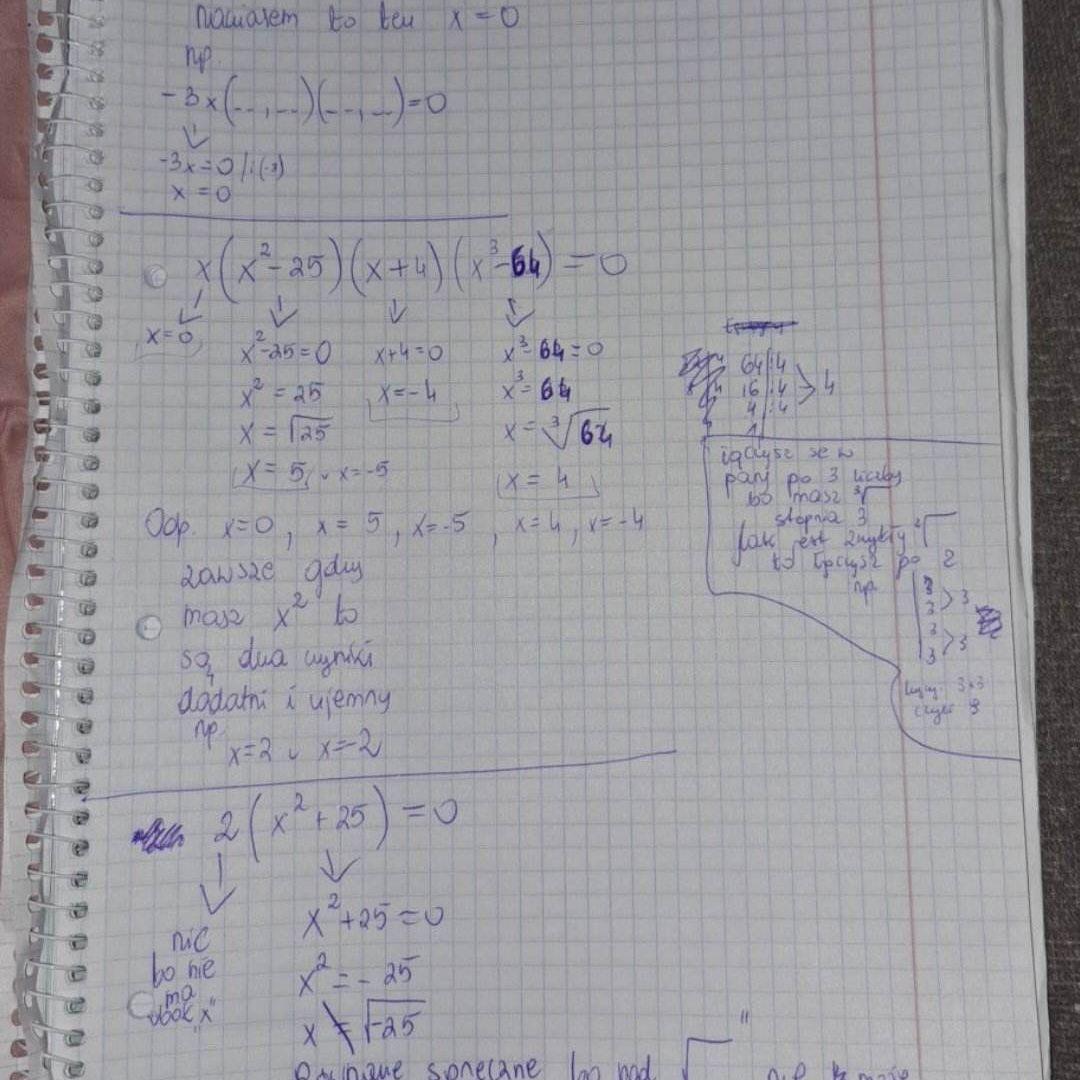 nawiasem to ten x = 0
np.
-3x(...,...)(...,...)=0
-3x=0 /:(-3)
x = 0
x(x²-25)(x+4)(x³-64)=0
x=0
x²-25=0
x² = 25
x = √25
x = 5 ∨ x=-5
x+4=0
x=-4
x³-64=0
x³=64
x=³√64
x = 4
64|:4
16|:4
4|:4
1|
>4
se w
pary po 3 liczby
bo masz ³√
stopnia 3
Jak jest zwykły ²√
to łączysz po 2
np
3
3 >3
3
3 >3
3·3
czyli 9
Odp. x=0, x=5, x=-5, x=4, x=-4
zawsze gdy
masz x² to
są dwa wyniki
dodatni i ujemny
np.
x=2 ∨ x=-2
2(x²+25)=0
nic
bo nie
ma
obok "x"
x²+25=0
x²=-25
x ≠ √-25
sprzeczne bo pod √ " nie może